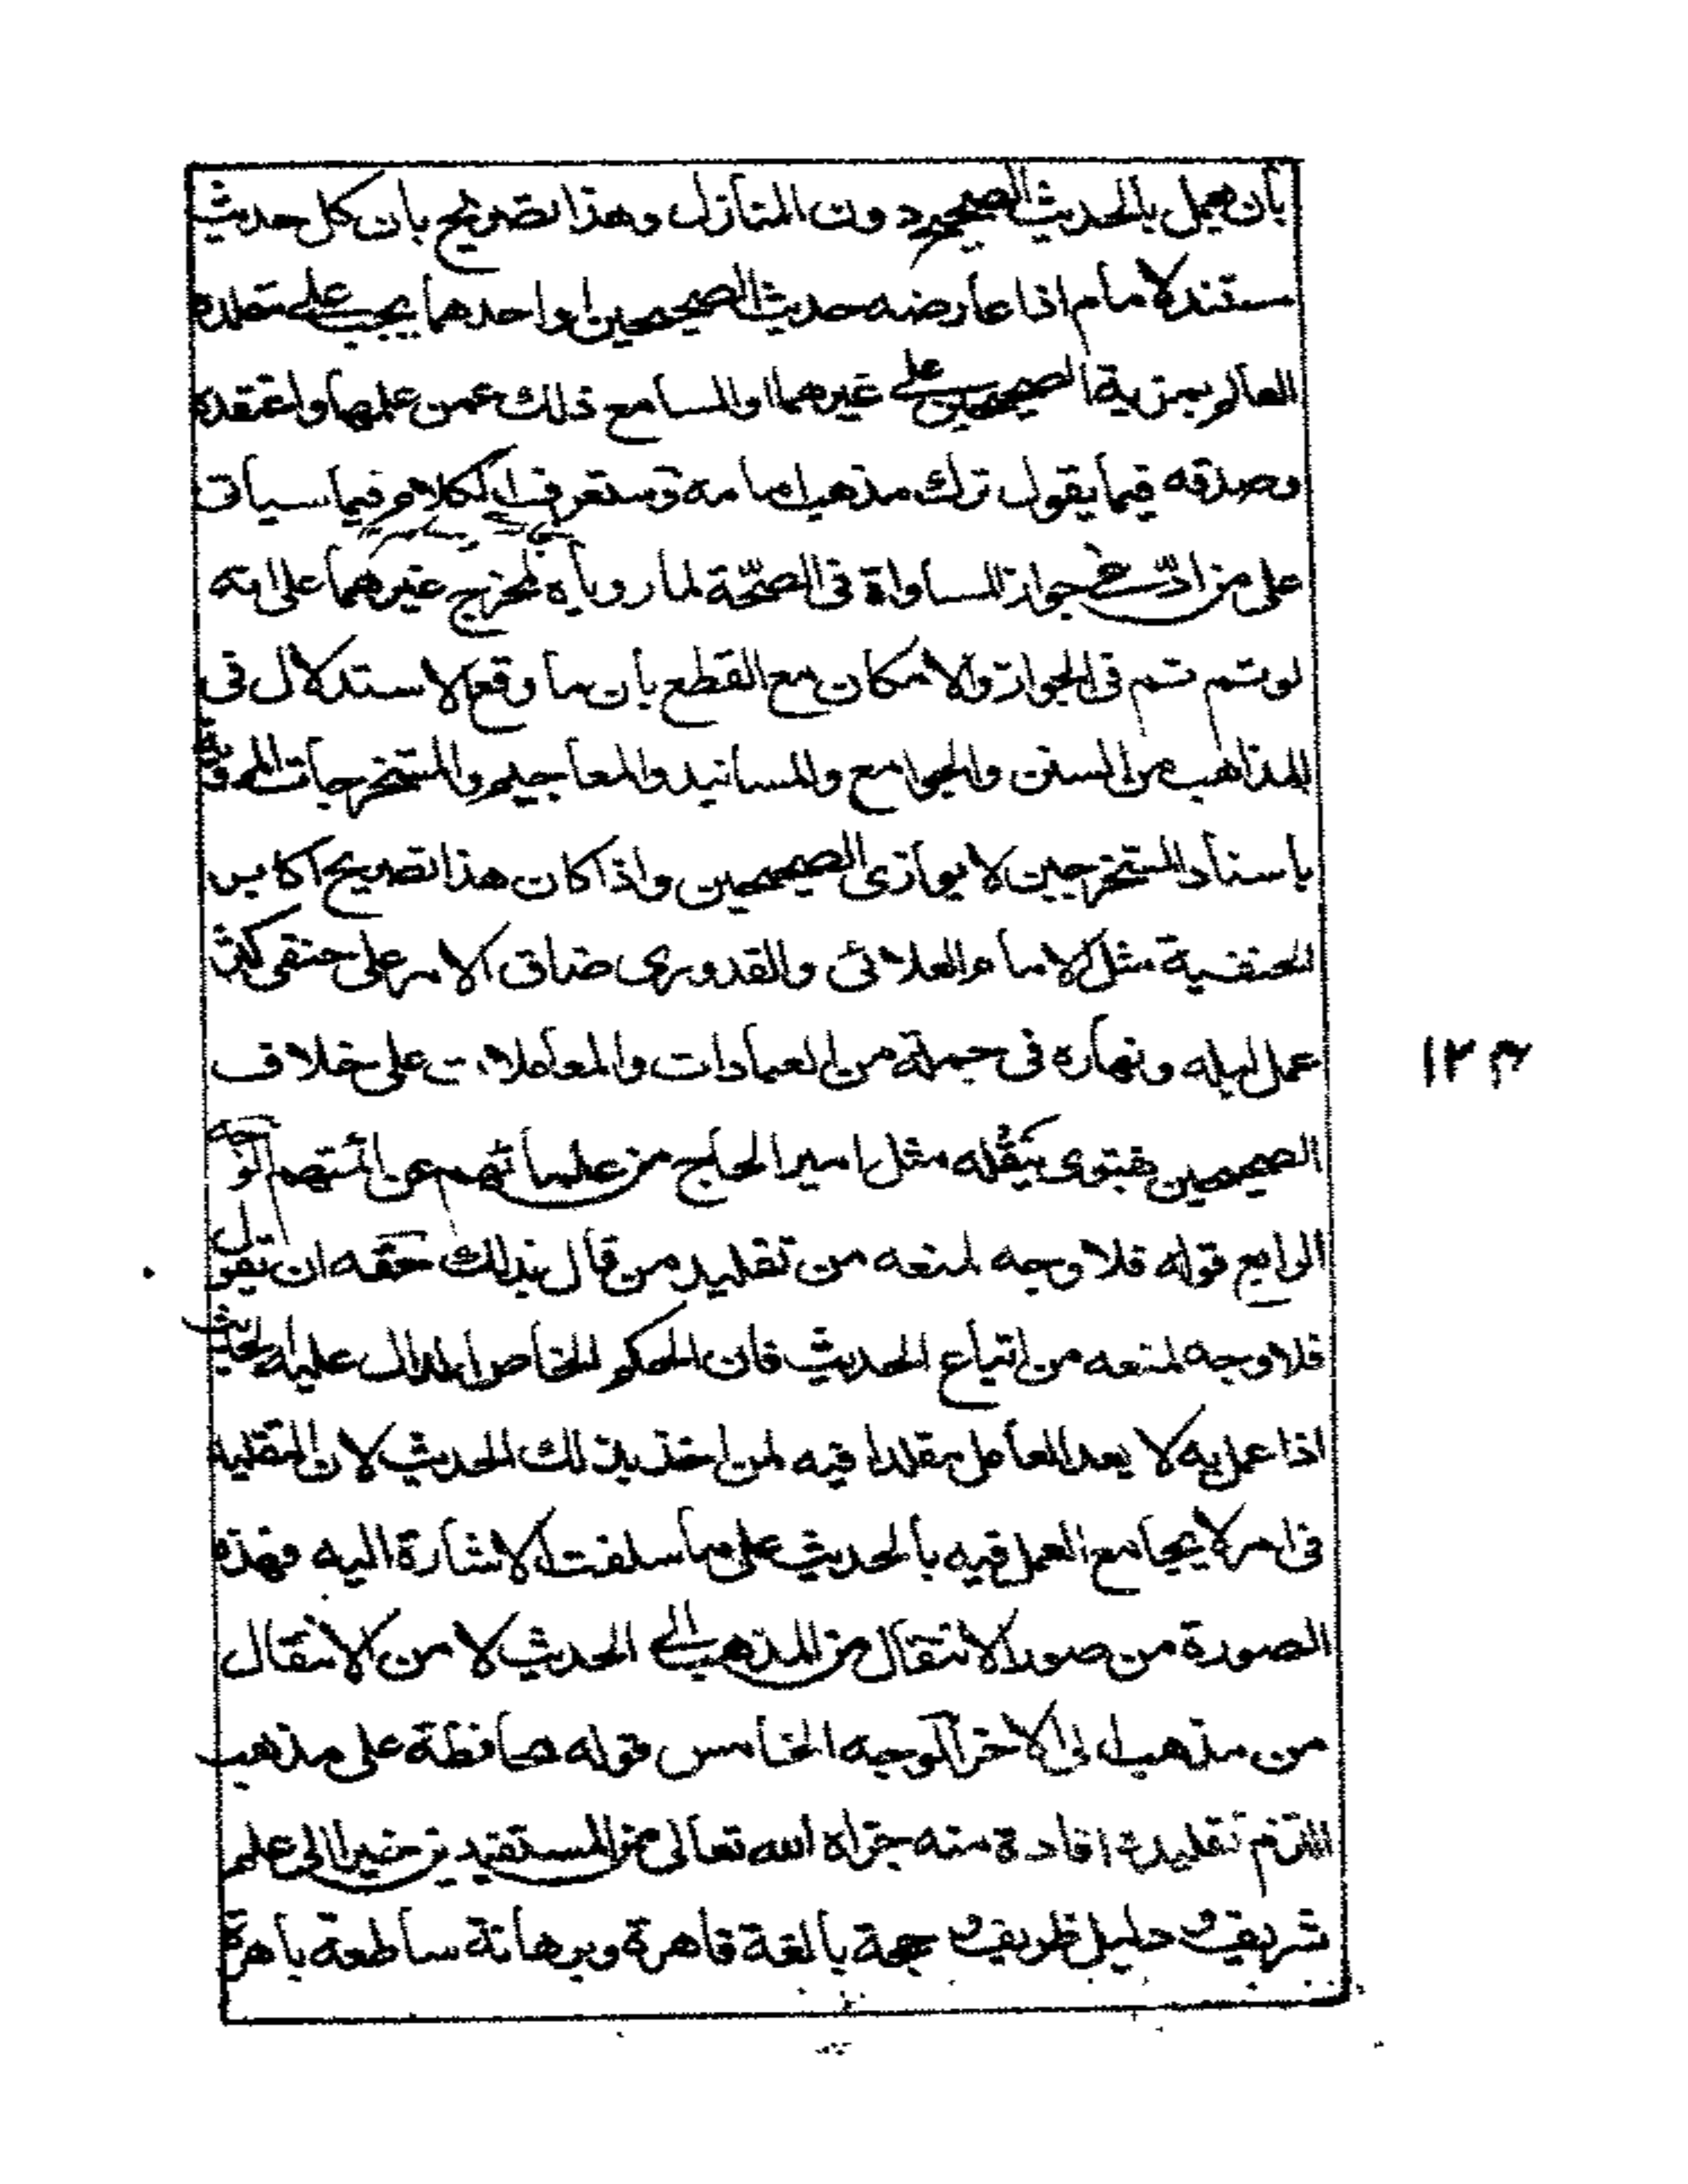 بان يعمل بالحديث الصحيح دون المنازل وهذا تصريح بان كل حديث
مستند لامام اذا عارضه حديث الصحيحين او احدهما يجب على مقلده
العالم بمزية الصحيحين على غيرهما او السامع ذلك عمن علمها واعتقده
وصدقه فيما يقول ترك مذهب امامه وستعرف الكلام فيما سياتى
على من ادعى جواز المساواة فى الصحة لما روياه لمخرج غيرهما على انه
لو تم تم فى الجواز والامكان مع القطع بان ما وقع الاستدلال فى
المذاهب من السنن والجوامع والمسانيد والمعاجيم والمستخرجات المروية
باسناد المستخرجين لا يوازى الصحيحين واذا كان هذا تصريح اكابر
الحنفية مثل الامام العلائى والقدورى ضاق الامر على حنفى كثر
عمل ليله ونهاره فى جملة من العبادات والمعاملات على خلاف
الصحيحين بفتوى ينقله مثل امير الحاج من علمائهم عن ائمتهم الوجه
الرابع قوله فلا وجه لمنعه من تقليد من قال بذلك حقه ان يقول
فلا وجه لمنعه من اتباع الحديث فان الحكم الخاص المدال عليه الحديث
اذا عمل به لا يعد العامل مقلدا فيه لمن اخذ بذلك الحديث لان التقليد
فى امر لا يجامع العمل فيه بالحديث على ما سلفت الاشارة اليه فهذه
الصورة من صور الانتقال من المذهب الى الحديث لا من الانتقال
من مذهب الى الاخر الوجه الخامس قوله محافظة على مذهب
التزم تقليده افادة منه جزاه الله تعالى عن المستفيدين خيرا الى علم
شريف و دليل ظريف و حجة بالغة قاهرة وبرهانة ساطعة باهرة
١٢٣